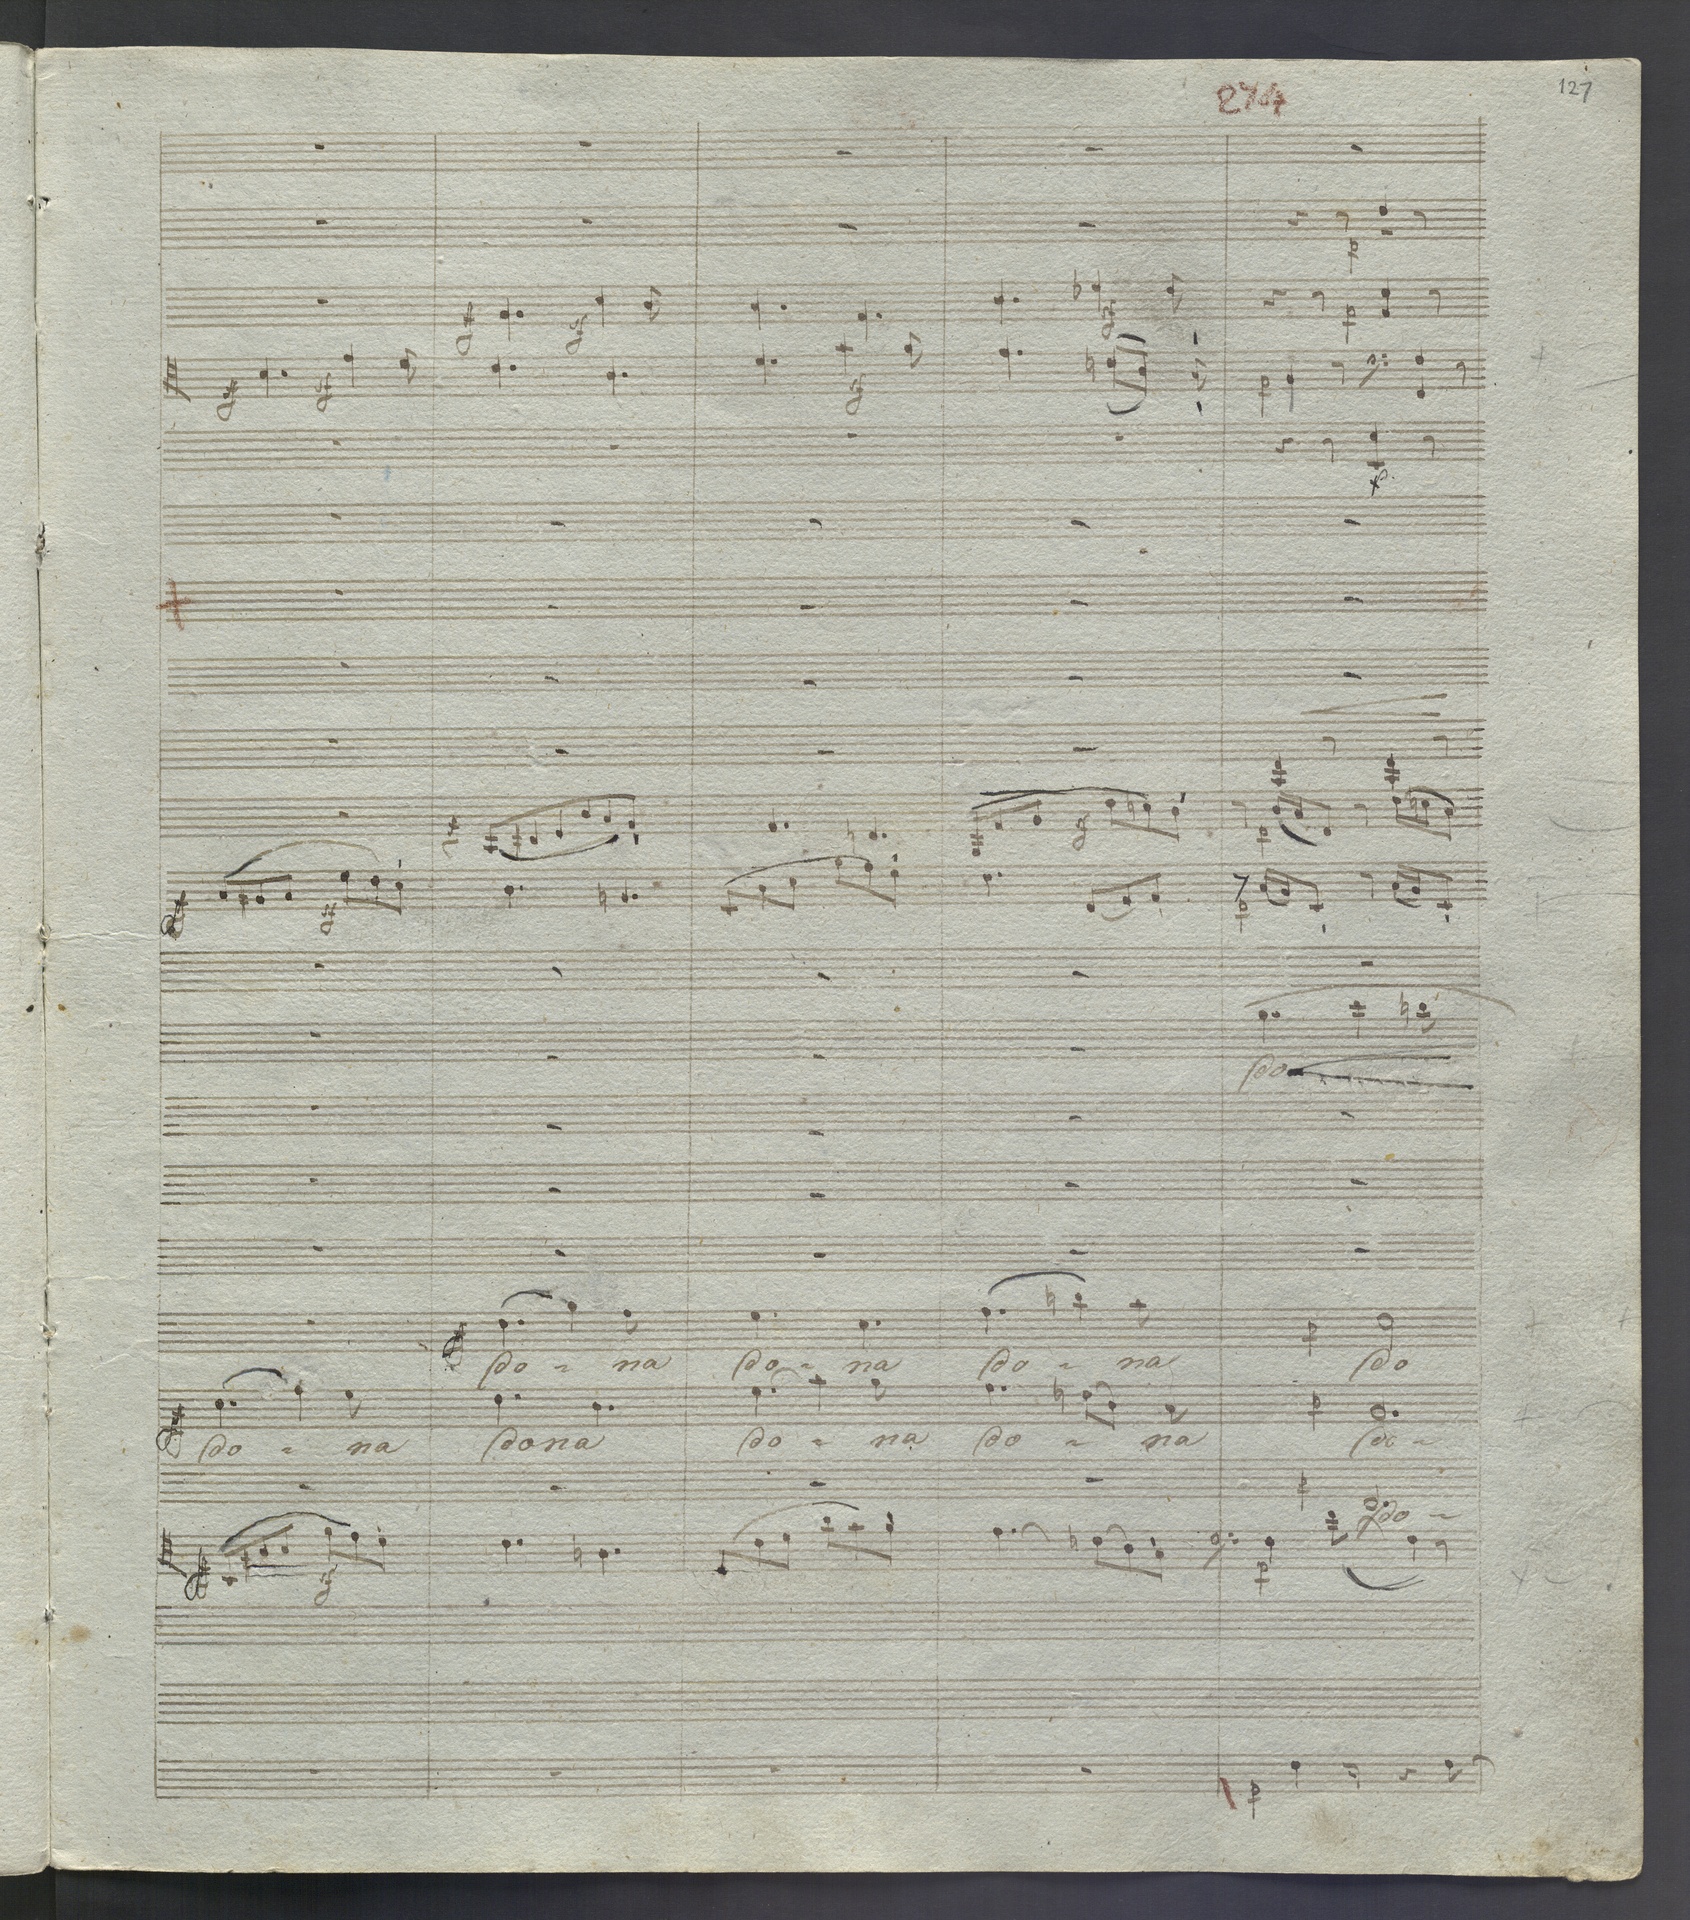 274
127
do
do - na do - na do - na do
do - na dona do - na do - na do -
do -